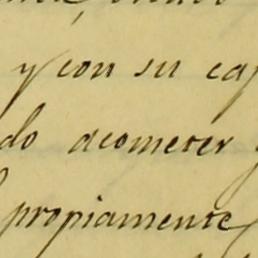 y con su
do acometer
propiamente